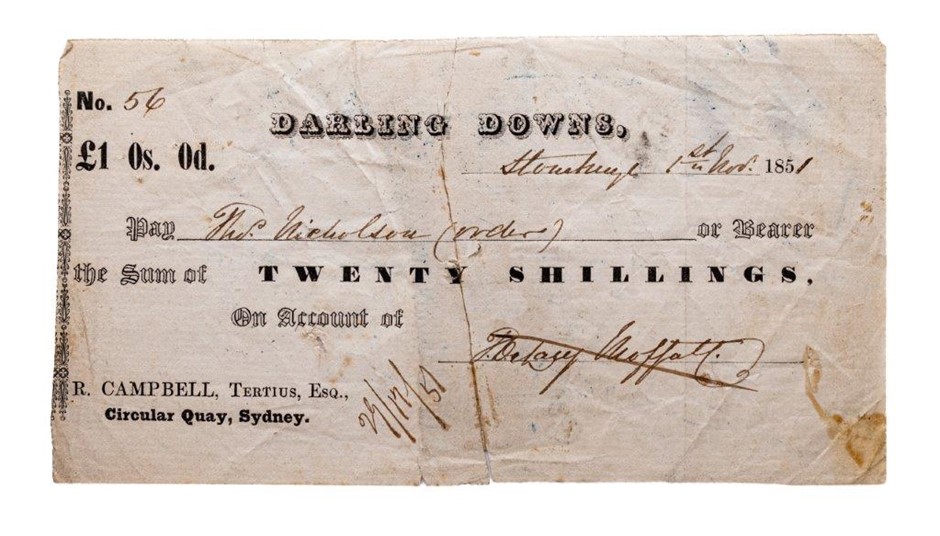 No. 56
DARLING DOWNS,
£1 0s. 0d.
Stonehenge 1st Novr. 1851
Pay Thos. Nicholson (order) or Bearer
the Sum of TWENTY SHILLINGS,
On Account of
T. DeLacy Moffatt.
R. CAMPBELL, TERTIUS, ESQ.,
Circular Quay, Sydney.
29/12/51